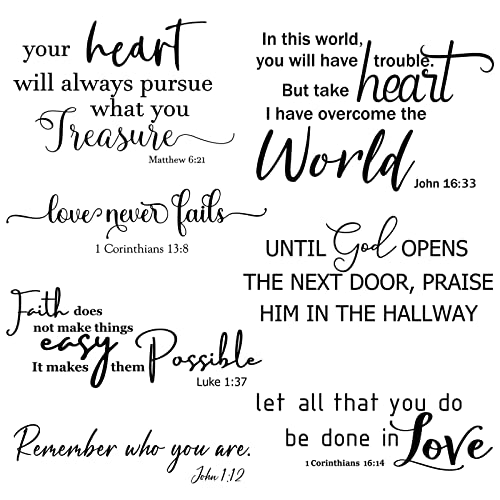 your heart
will always pursue
what you
Treasure
Matthew 6:21
In this world,
you will have trouble.
But take heart
I have overcome the
World
John 16:33
love never fails
1 Corinthians 13:8
UNTIL God OPENS
THE NEXT DOOR, PRAISE
HIM IN THE HALLWAY
Faith does
not make things
easy
It makes them Possible
Luke 1:37
let all that you do
be done in Love
1 Corinthians 16:14
Remember who you are.
John 1:12